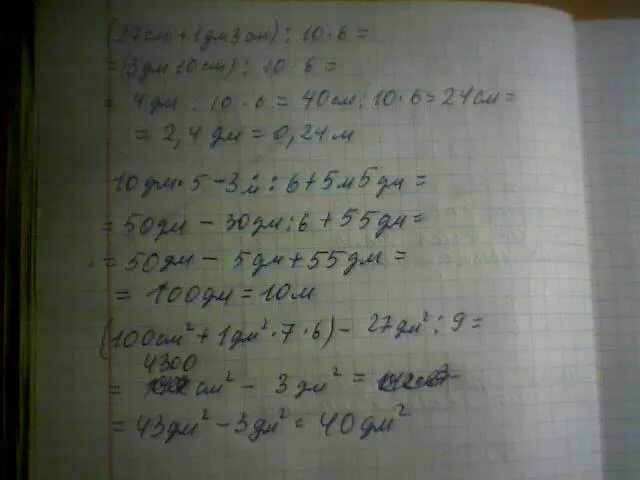 (27см + 1дм 3см) : 10 · 6 =
= (3дм 10см) : 10 · 6 =
= 4дм : 10 · 6 = 40см : 10 · 6 = 24см =
= 2,4 дм = 0,24 м
10дм · 5 - 3м : 6 + 5м 5дм =
= 50дм - 30дм : 6 + 55дм =
= 50дм - 5дм + 55дм =
= 100дм = 10м
(100см² + 1дм² · 7 · 6) - 27дм² : 9 =
= 4300 см² - 3дм² =
= 43дм² - 3дм² = 40дм²